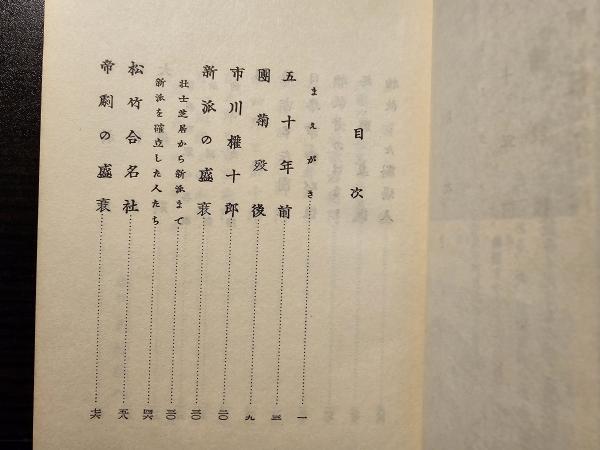 目次
まえがき 一
五十年前 三
團菊歿後 九
市川權十郎 二〇
新派の盛衰 三〇
壯士芝居から新派まで 三〇
新派を確立した人たち 四六
松竹合名社 五九
帝劇の盛衰 七六